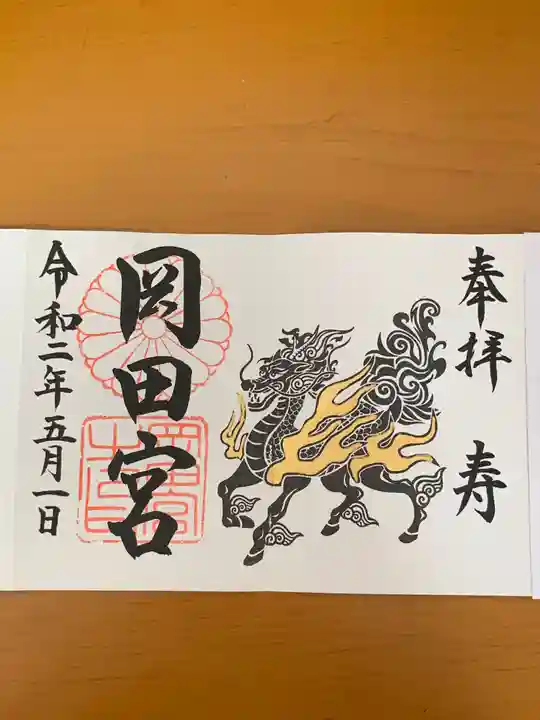 奉拝 寿
岡田宮
令和二年五月一日